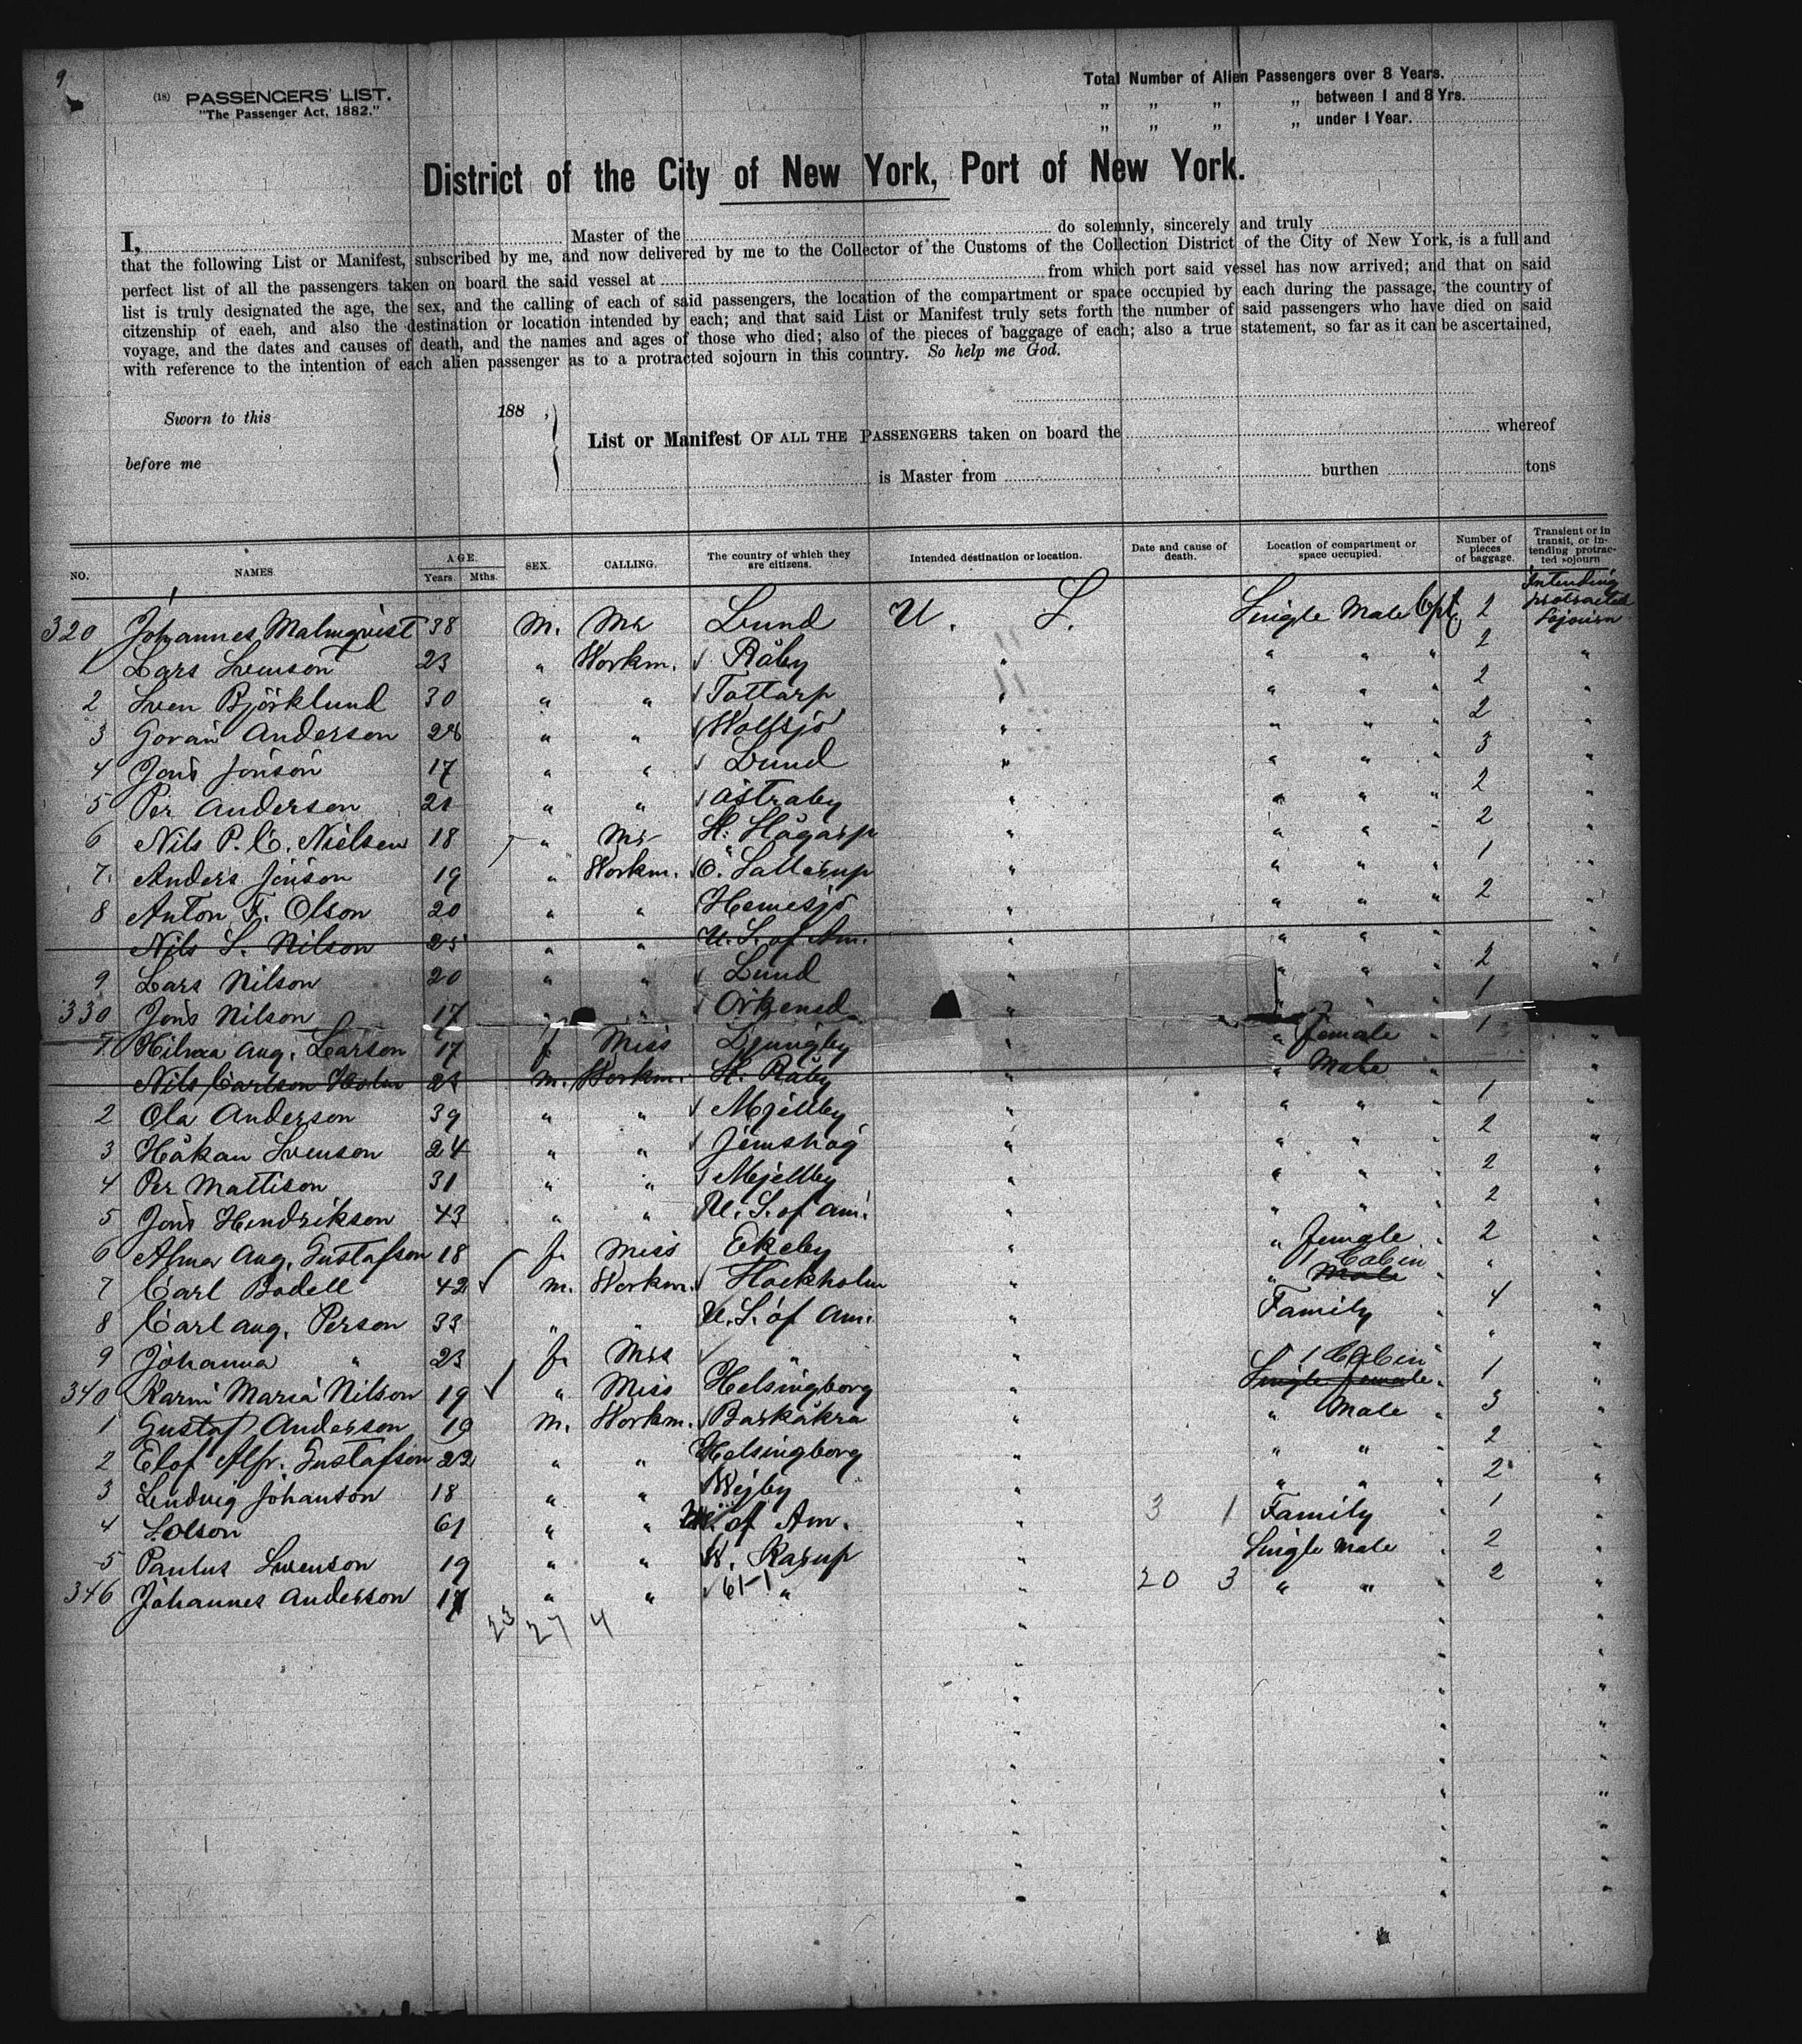 9
(18) PASSENGERS' LIST.
"The Passenger Act, 1882."
Total Number of Alien Passengers over 8 Years.
„ „ „ „ between 1 and 8 Yrs.
„ „ „ „ under 1 Year.
District of the City of New York, Port of New York.
I, Master of the do solemnly, sincerely and truly
that the following List or Manifest, subscribed by me, and now delivered by me to the Collector of the Customs of the Collection District of the City of New York, is a full and
perfect list of all the passengers taken on board the said vessel at from which port said vessel has now arrived; and that on said
list is truly designated the age, the sex, and the calling of each of said passengers, the location of the compartment or space occupied by each during the passage, the country of
citzenship of eaeh, and also the destination or location intended by each; and that said List or Manifest truly sets forth the number of said passengers who have died on said
voyage, and the dates and causes of death, and the names and ages of those who died; also of the pieces of baggage of each; also a true statement, so far as it can be ascertained,
with reference to the intention of each alien passenger as to a protracted sojourn in this country. So help me God.
Sworn to this 188 ,
before me
List or Manifest OF ALL THE PASSENGERS taken on board the whereof
is Master from burthen tons
NO. NAMES. AGE. Years. Mths. SEX. CALLING. The country of which they are citizens. Intended destination or location. Date and cause of death. Location of compartment or space occupied. Number of pieces of baggage. Transient or in transit, or intending protracted sojourn
320 Johannes Malmqvist 38 M. Mr Lund U. S. Single Male Cpt. 2 Intending protracted Sojourn
1 Lars Svenson 23 " Workm. Råby " " " " 2 "
2 Sven Björklund 30 " " Tottarp " " " " 2 "
3 Goran Anderson 28 " " Wollsjö " " " " 2 "
4 Jöns Jönson 17 " " Lund " " " " 3 "
5 Per Anderson 21 " " Östraby " " " " 2 "
6 Nils P. C. Nielsen 18 " Mr H. Högarp " " " " 2 "
7 Anders Jönson 19 " Workm. Ö. Sallerup " " " " 1 "
8 Anton F. Olson 20 " " Hemesjö " " " " 2 "
Nils S. Nilson 25 " " U. S. of Am. " " " " "
9 Lars Nilson 20 " " Lund " " " " 2 "
330 Jöns Nilson 17 " " Örkened " " " " 1 "
1 Hilma Aug. Larson 17 f Miss Ljungby " " female " 1 "
Nils Carlson Holm 24 m. Workm. H. Råby " " Male " "
2 Ola Anderson 39 " " Mjellby " " " " 1 "
3 Håkan Svenson 24 " " Jemshög " " " " 2 "
4 Per Mattison 31 " " Mjellby " " " " 2 "
5 Jöns Hendrikson 43 " " U. S. of Am. " " " " 2 "
6 Alma Aug. Gustafson 18 f. Miss Ekeby " " female " 2 "
7 Carl Bodell 42 m. Workm. Stockholm " " Male 1 Cabin " " "
8 Carl Aug. Person 33 " " U. S. of Am. " Family " 4 "
9 Johanna " 23 f. Mrs " " " "
340 Karin Maria Nilson 19 " Miss Helsingborg " Single female 1 Cabin " 1 "
1 Gustaf Anderson 19 m. Workm. Barkåkra " " Male " 3 "
2 Elof Alfr. Gustafson 22 " " Helsingborg " " " " 2 "
3 Ludvig Johanson 18 " " Wejby " " " " 2 "
4 S. Olson 61 " " of Am. " 3 1 Family " 1 "
5 Paulus Svenson 19 " " W. Karup " Single Male " 2 "
346 Johannes Anderson 17 " " 61-1 " " 20 3 " " 2 "
23 27 4